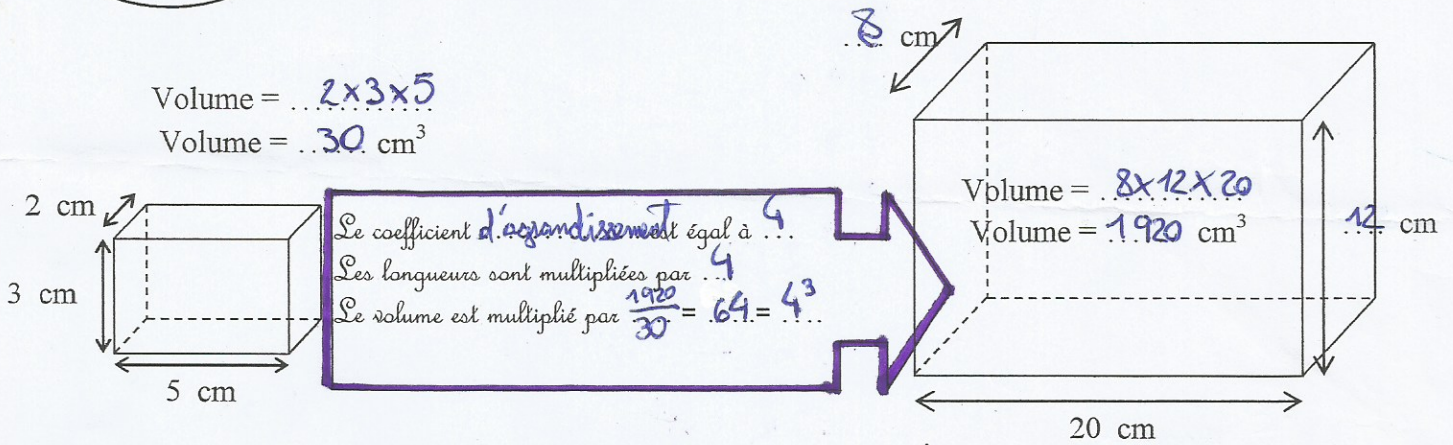 Volume = ...2×3×5
Volume = ..30. cm³
2 cm
3 cm
5 cm
Le coefficient d'agrandissement est égal à .4..
Les longueurs sont multipliées par ..4
Le volume est multiplié par 1920/30 = .64.= .4³...
..8.. cm
Volume = ..8×12×20
Volume = .1.920 cm³
.12. cm
20 cm